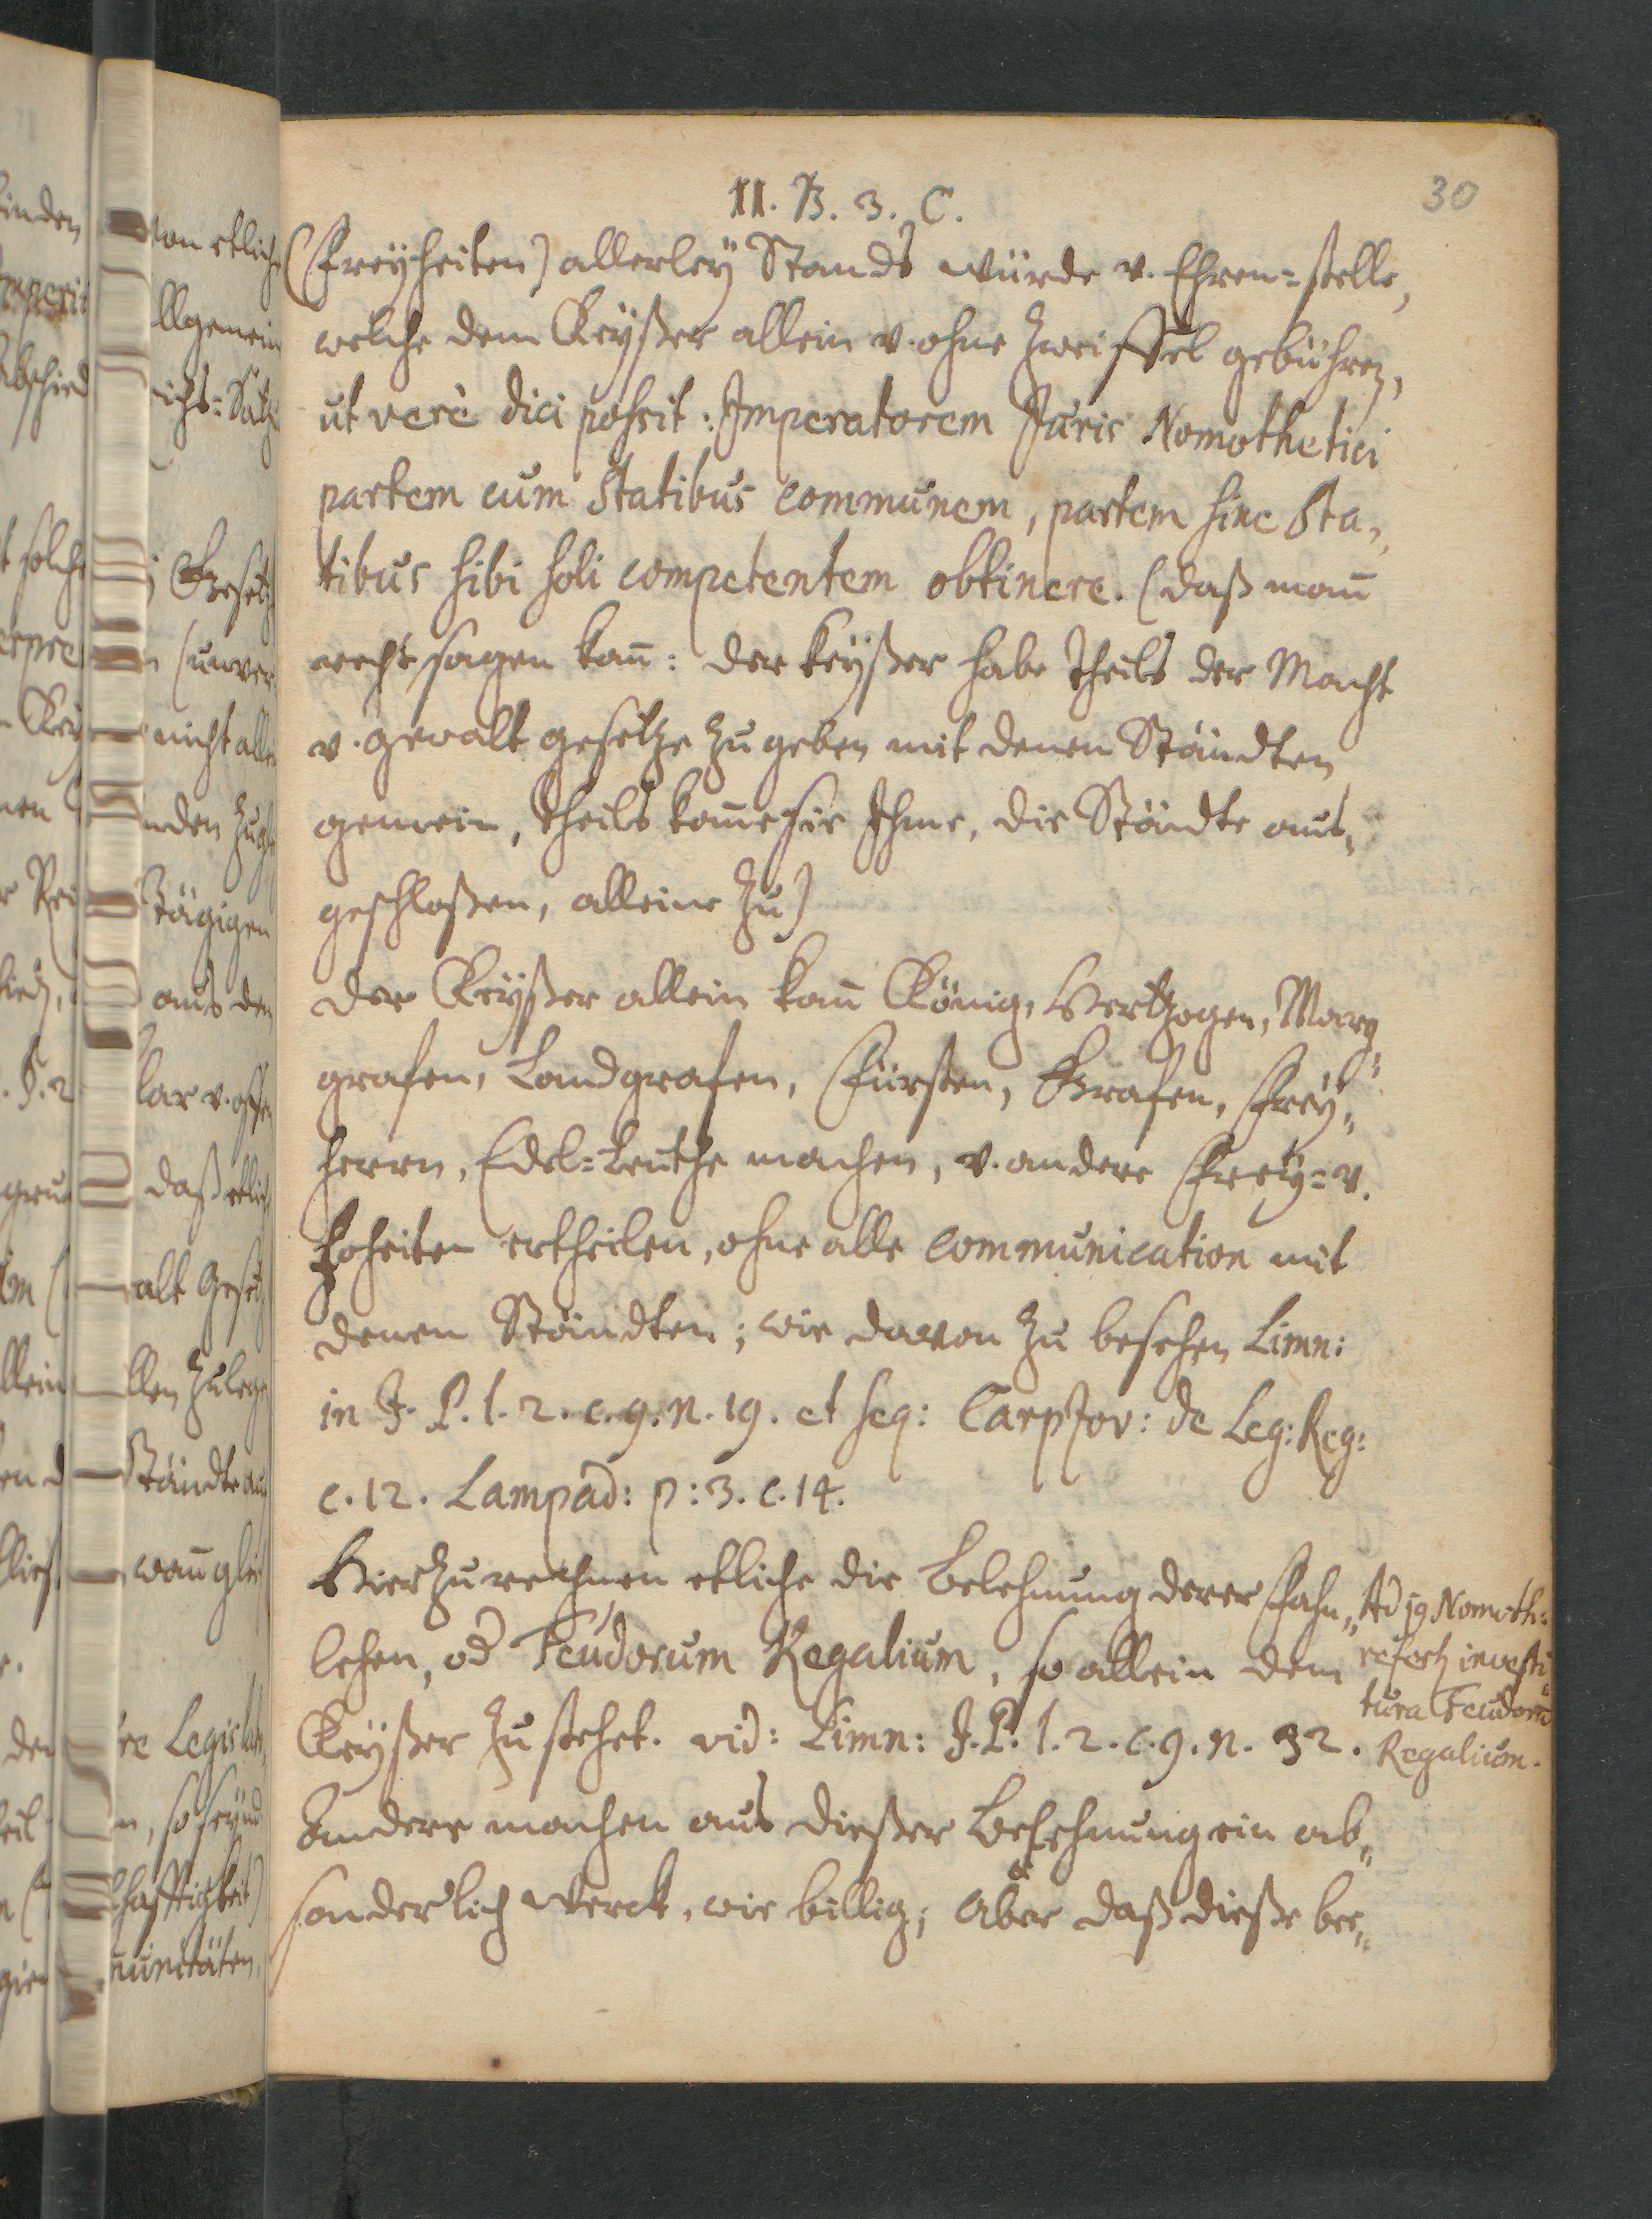 II. B. 3. C.
30
(Freyheiten) allerleÿ Stands würde v. Ehren=stelle,
welche dem Keÿßer allein v. ohne Zweiffel gebühren,
ut verè dici possit: Imperatorem Juris Nomothetici
partem cum Statibus communem, partem sine Sta„
tibus sibi soli competentem obtinere. (daß mañ
recht sagen kañ: der Keÿßer habe theils der Macht
v. gewalt gesetze zu geben mit denen Ständten
gemein, theils kom̄e sie Ihme, die Ständte aus„
geschloßen, alleine zu)
Der Keÿßer allein kañ König, Hertzogen, Marg„
grafen, Landgrafen, Fürsten, Grafen, Freÿ„
herrn, Edel=Leuthe machen, v. andere Freÿ= v.
Hoheiten ertheilen, ohne alle communication mit
denen Ständten; wie davon zu besehen Limn:
in J. P. l. 2. c. 9. n. 19. et seq: Carpzov: de Leg: Reg:
c. 12. Lampad: p: 3. c. 14.
Hierzu rechnen etliche die Belehnung derer Fahn„
lehen, od Feudorum Regalium, so allein dem
Keÿßer zustehet. vid: Limn: J. P. l. 2. c. 9. n. 32.
Andere machen aus dießer Belehnung ein ab„
sonderlich Werck, wie billig; Aber daß dieße be„
Ad jq Nomoth:
refert investi„
tura Feudorū
Regalium.
von etliche
allgemein
Gesetz
(unver
nicht alle
Stägigen
aus den
daß etlich
Ständte aus
wañ glei
Legislat
, so seÿnd
munitäten,